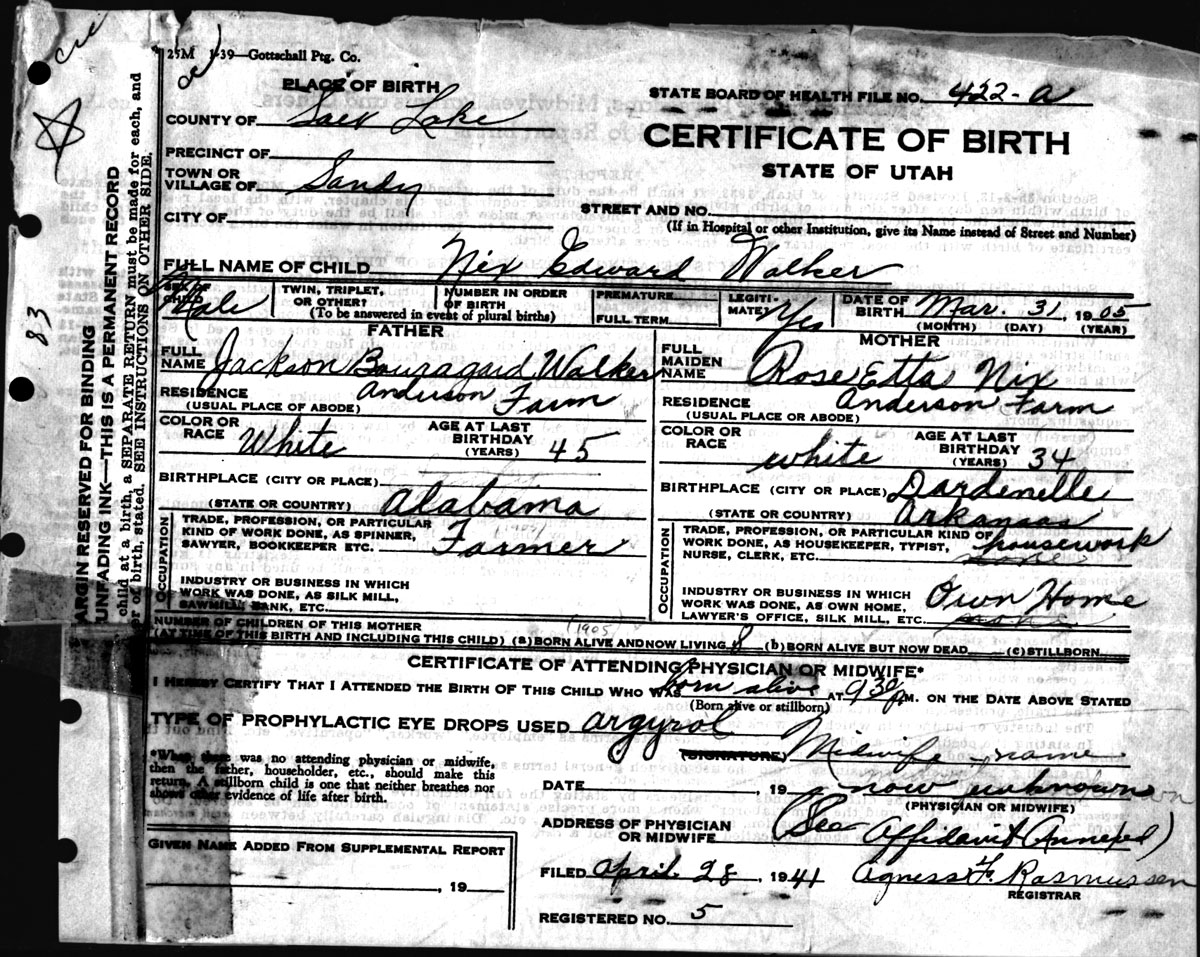 25M 1-39—Gottschall Ptg. Co.
PLACE OF BIRTH
STATE BOARD OF HEALTH FILE NO. 422-a
COUNTY OF Salt Lake
CERTIFICATE OF BIRTH
PRECINCT OF
STATE OF UTAH
TOWN OR VILLAGE OF Sandy
STREET AND NO.
CITY OF
(If in Hospital or other Institution, give its Name instead of Street and Number)
FULL NAME OF CHILD Nix Edward Walker
SEX OF CHILD Male
TWIN, TRIPLET, OR OTHER?
NUMBER IN ORDER OF BIRTH
(To be answered in event of plural births)
PREMATURE
FULL TERM
LEGITIMATE? Yes
DATE OF BIRTH Mar. 31, 1905
(MONTH) (DAY) (YEAR)
FATHER
FULL NAME Jackson Bouragard Walker
RESIDENCE Anderson Farm
(USUAL PLACE OF ABODE)
COLOR OR RACE White
AGE AT LAST BIRTHDAY (YEARS) 45
BIRTHPLACE (CITY OR PLACE)
(STATE OR COUNTRY) Alabama
OCCUPATION
TRADE, PROFESSION, OR PARTICULAR
KIND OF WORK DONE, AS SPINNER,
SAWYER, BOOKKEEPER ETC. Farmer
(1905)
INDUSTRY OR BUSINESS IN WHICH
WORK WAS DONE, AS SILK MILL,
SAWMILL, BANK, ETC.
MOTHER
FULL MAIDEN NAME Rose Etta Nix
RESIDENCE Anderson Farm
(USUAL PLACE OR ABODE)
COLOR OR RACE white
AGE AT LAST BIRTHDAY (YEARS) 34
BIRTHPLACE (CITY OR PLACE) Dardenelle
(STATE OR COUNTRY) Arkansas
OCCUPATION
TRADE, PROFESSION, OR PARTICULAR KIND OF
WORK DONE, AS HOUSEKEEPER, TYPIST, housework
NURSE, CLERK, ETC. none
INDUSTRY OR BUSINESS IN WHICH
WORK WAS DONE, AS OWN HOME, Own Home
LAWYER'S OFFICE, SILK MILL, ETC. none
NUMBER OF CHILDREN OF THIS MOTHER (1905)
(AT TIME OF THIS BIRTH AND INCLUDING THIS CHILD) (a) BORN ALIVE AND NOW LIVING 8 (b) BORN ALIVE BUT NOW DEAD (c) STILLBORN
CERTIFICATE OF ATTENDING PHYSICIAN OR MIDWIFE*
I HEREBY CERTIFY THAT I ATTENDED THE BIRTH OF THIS CHILD WHO WAS born alive AT 9 30 P.M. ON THE DATE ABOVE STATED
(Born alive or stillborn)
TYPE OF PROPHYLACTIC EYE DROPS USED argyrol
(SIGNATURE) Midwife - name
*When there was no attending physician or midwife,
then the father, householder, etc., should make this
return. A stillborn child is one that neither breathes nor
shows other evidence of life after birth.
DATE , 19 now unknown
(PHYSICIAN OR MIDWIFE)
ADDRESS OF PHYSICIAN OR MIDWIFE (See Affidavit Annexed)
GIVEN NAME ADDED FROM SUPPLEMENTAL REPORT
, 19
FILED April 28, 1941 Agness F. Rasmussen
REGISTRAR
REGISTERED NO. 5
83
MARGIN RESERVED FOR BINDING
UNFADING INK—THIS IS A PERMANENT RECORD
child at a birth, a SEPARATE RETURN must be made for each, and
er of birth, stated. SEE INSTRUCTIONS ON OTHER SIDE.